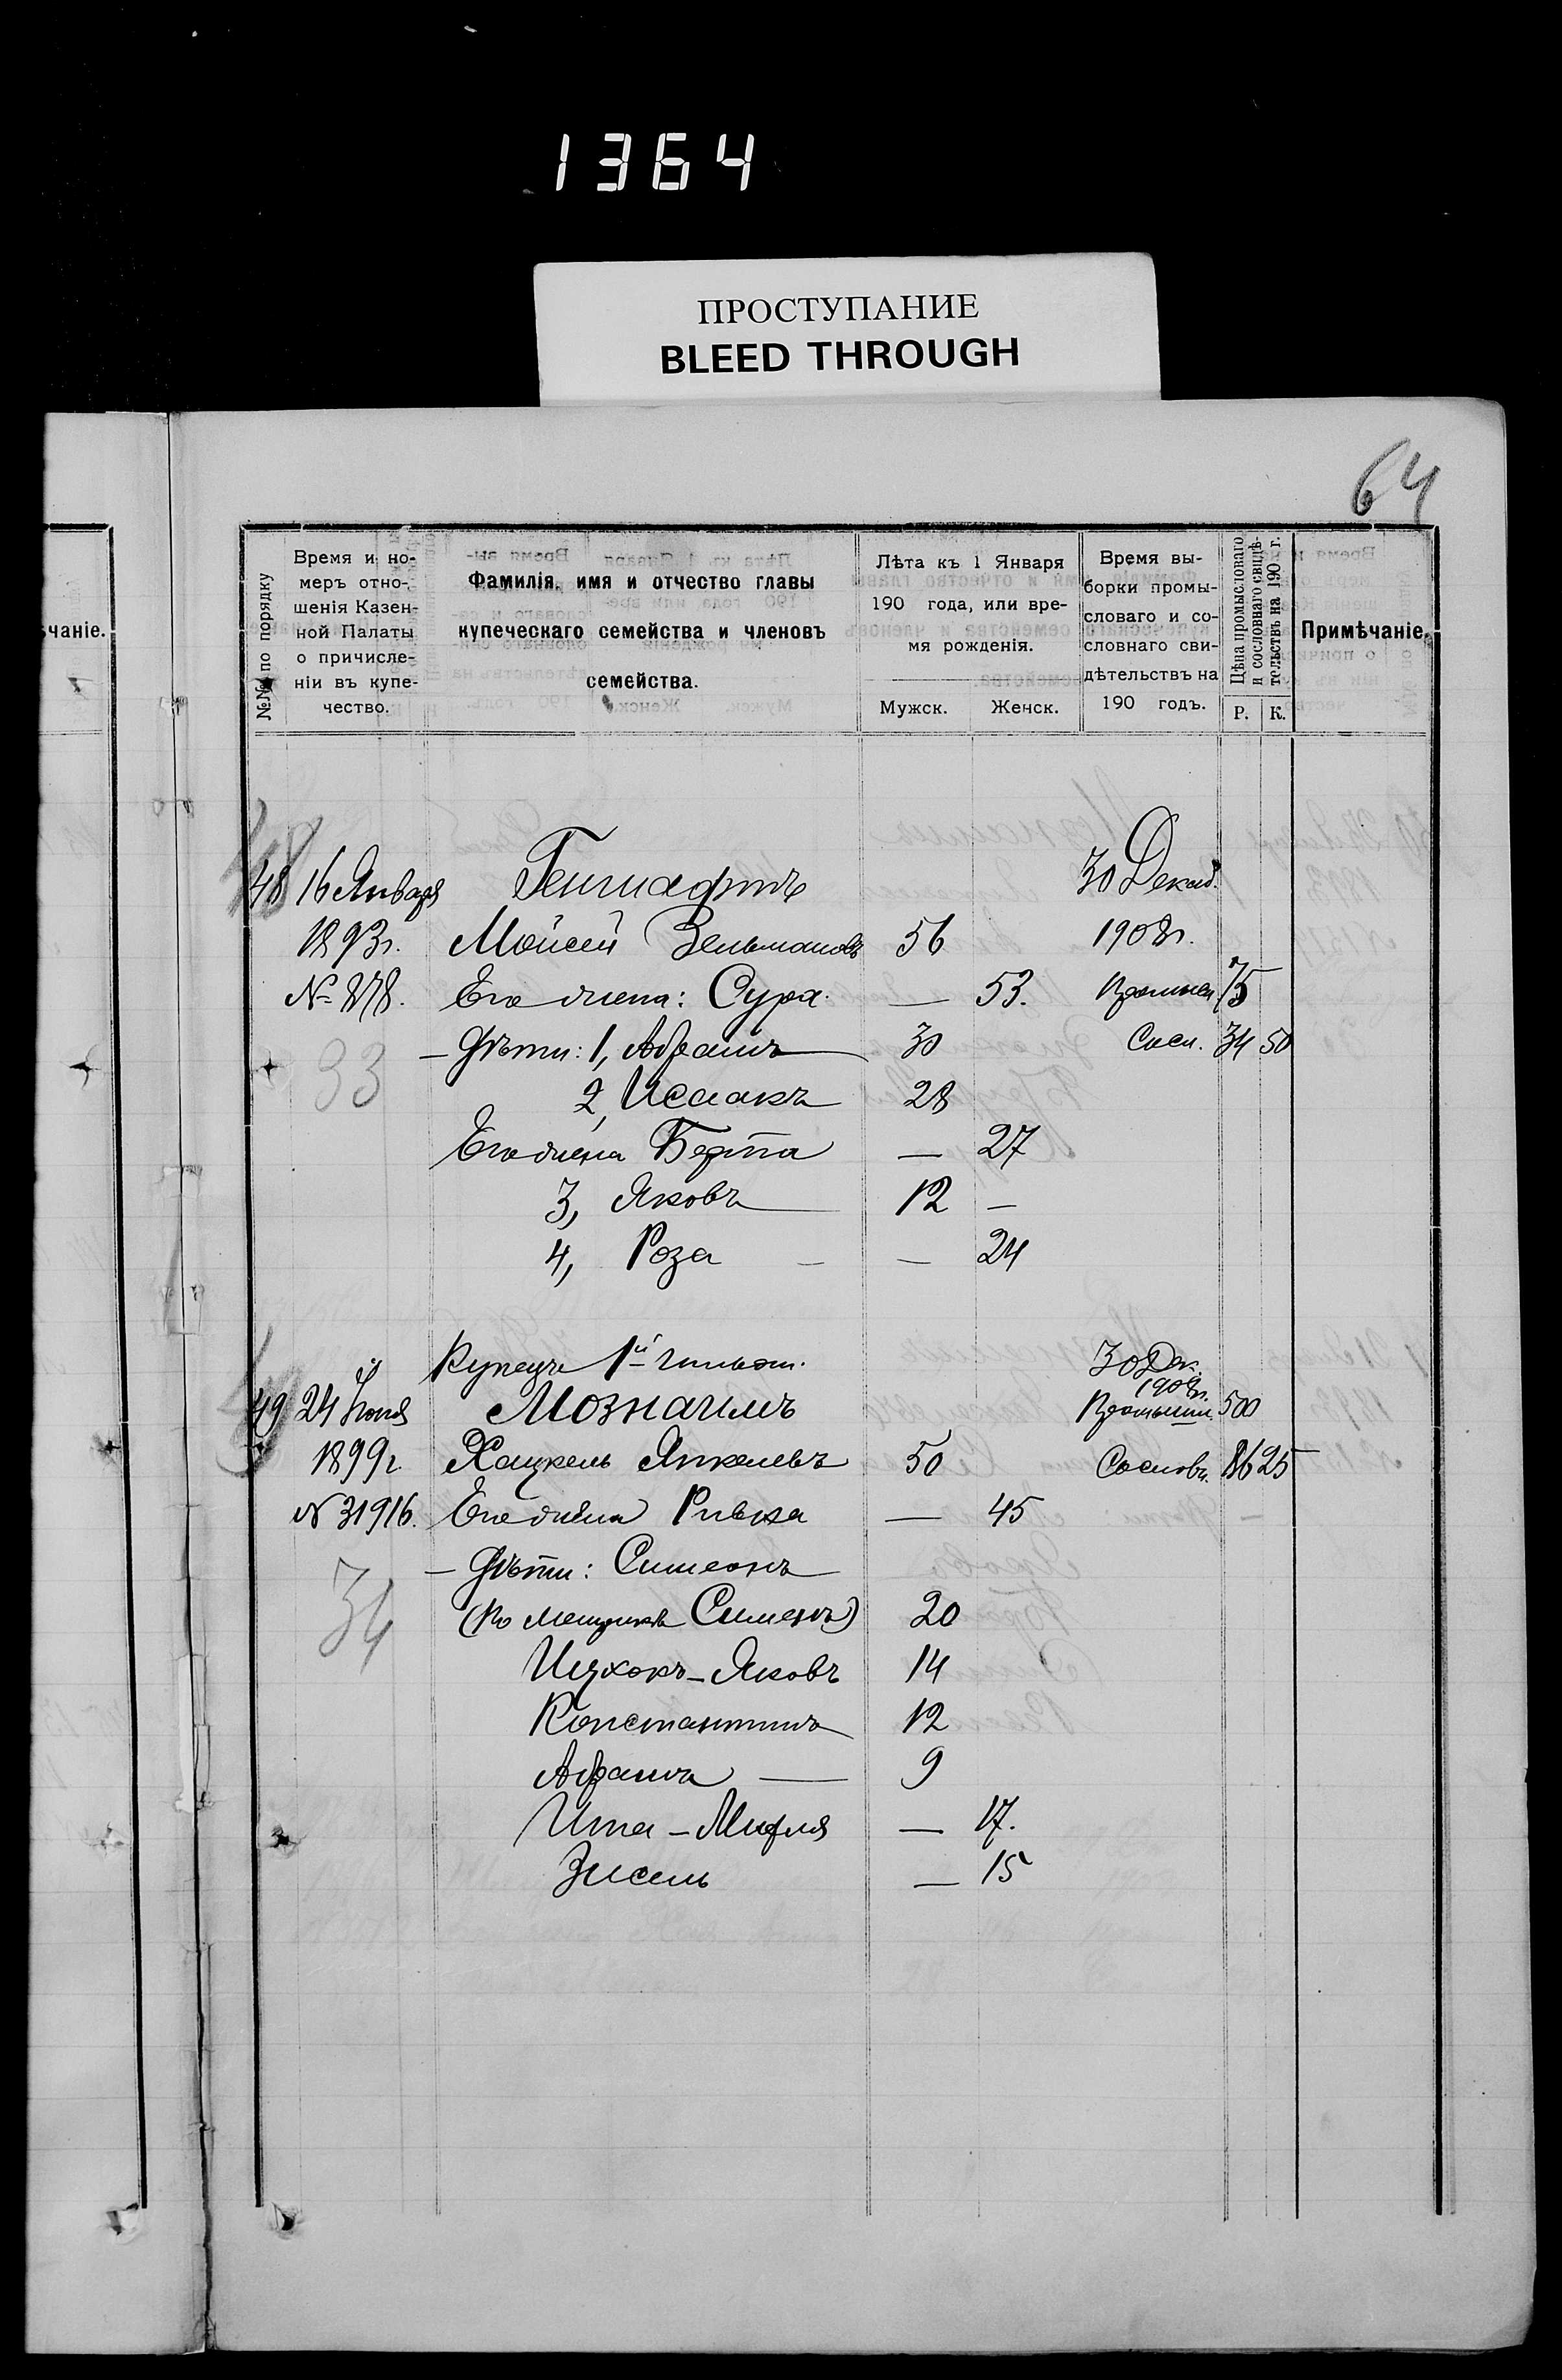 1364
ПРОСТУПАНИЕ
BLEED THROUGH
64
чаніе.
№№ по порядку
Время и но-
меръ отно-
шенія Казен-
ной Палаты
о причисле-
ніи въ купе-
чество.
Фамилія, имя и отчество главы
купеческаго семейства и членовъ
семейства.
Лѣта къ 1 Января
190 года, или вре-
мя рожденія.
Мужск. Женск.
Время вы-
борки промы-
словаго и со-
словнаго сви-
дѣтельствъ на
190 годъ.
Цѣна промысловаго
и сословнаго свидѣ-
тельствъ на 190 г.
Р. К.
Примѣчаніе.
48 16 Января 30 Декаб.
1893г. Мойсей Зельмановъ 56 1908г.
№ 878. Его жена: Сура. — 53. 75
33 — Дѣти: 1, Абрамъ 30 Сосл. 34 50
2, Исаакъ 28
Его жена Берта — 27
3, Яковъ 12 —
4, Роза — — 24
Купецъ 1й гильдіи. 30 Дек.
1908г.
49 24 Іюня Мознаимъ 500
1899г. Хацкель Янкелевъ 50 Сословн. 86 25
№ 31916. Его жена Ривка — 45
— Дѣти: Симеонъ
34 (по Симеонъ) 20
Ицхокъ-Яковъ 14
Константинъ 12
Абрамъ — 9
Ита-Мирля — 17.
Зисель — 15